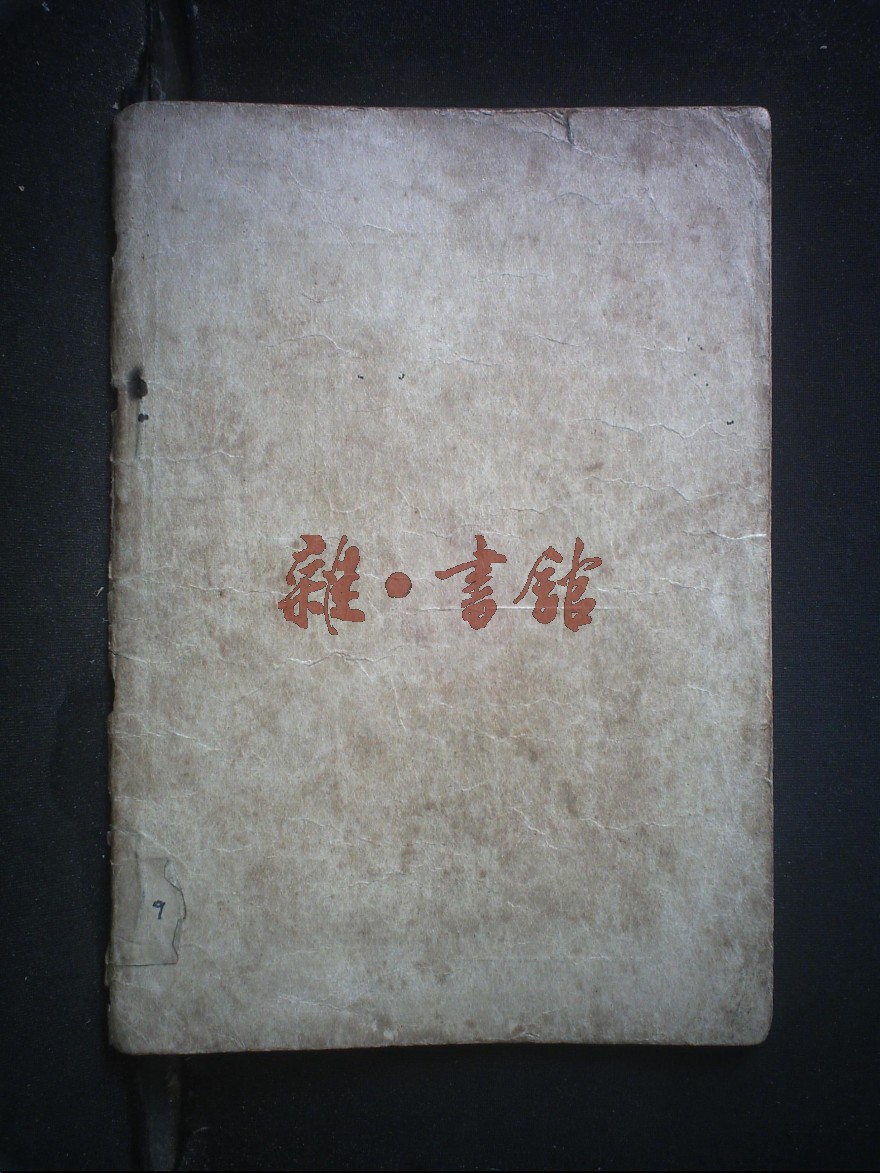 雜·書館
9